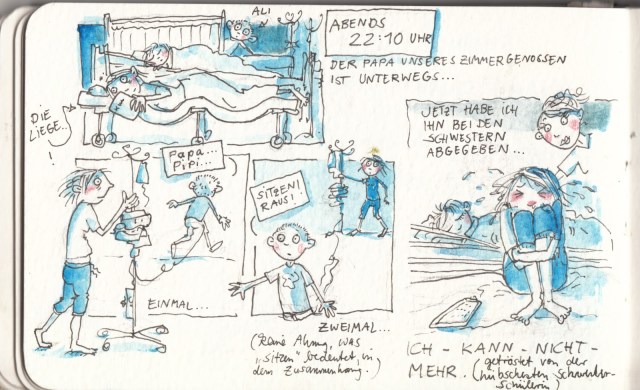 ALI
ABENDS
22:10 UHR
DER PAPA UNSERES ZIMMERGENOSSEN
IST UNTERWEGS...
DIE
LIEGE...
!
Papa...
Pipi...
EINMAL...
SITZEN!
RAUS!
ZWEIMAL...
(Keine Ahnung, was
„sitzen" bedeutet, in
dem Zusammenhang.)
JETZT HABE ICH
IHN BEI DEN
SCHWESTERN
ABGEGEBEN...
ICH - KANN - NICHT -
MEHR. (getröstet von der
hübschesten Schwestern-
schülerin)